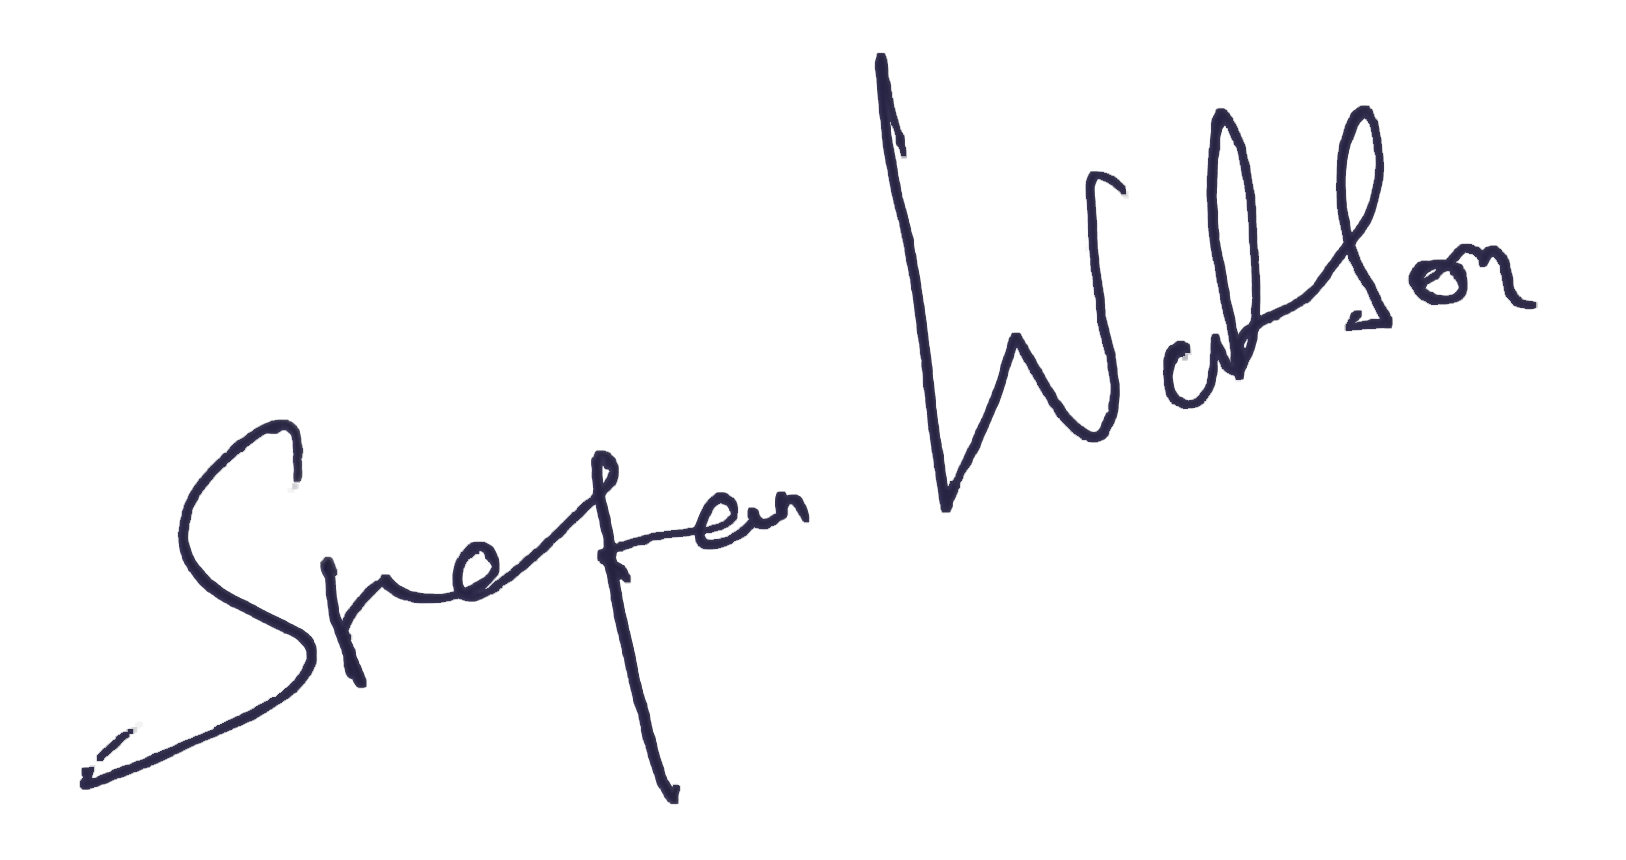 Stefan Watson